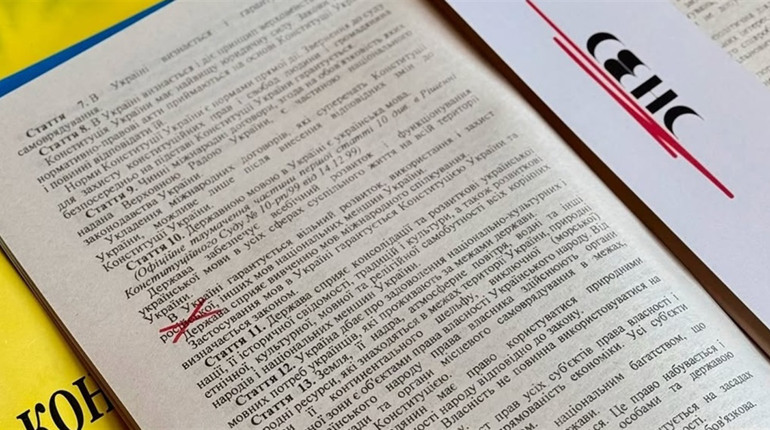 Стаття 7. В Україні визнається і
самоврядування.
Стаття 8. В Україні визнається і діє принцип
Конституція України має найвищу юридичну силу. Закони
нормативно-правові акти приймаються на основі Конституції
і повинні відповідати їй.
Норми Конституції України є нормами прямої дії. Звернення до суду
для захисту конституційних прав і свобод людини і громадянина
безпосередньо на підставі Конституції України гарантується.
Стаття 9. Чинні міжнародні договори, згода на обов'язковість яких
надана Верховною Радою України, є частиною національного
законодавства України.
Укладення міжнародних договорів, які суперечать Конституції
України, можливе лише після внесення відповідних змін до
Конституції України.
Стаття 10. Державною мовою в Україні є українська мова.
Офіційне тлумачення частини першої статті 10 див. в Рішенні
Конституційного Суду № 10-рп/99 від 14.12.99
Держава забезпечує всебічний розвиток і функціонування
української мови в усіх сферах суспільного життя на всій території
України.
В Україні гарантується вільний розвиток, використання і захист
російської, інших мов національних меншин України.
Держава сприяє вивченню мов міжнародного спілкування.
Застосування мов в Україні гарантується Конституцією України та
визначається законом.
Стаття 11. Держава сприяє консолідації та розвиткові української
нації, її історичної свідомості, традицій і культури, а також розвиткові
етнічної, культурної, мовної та релігійної самобутності всіх корінних
народів і національних меншин України.
Стаття 12. Україна дбає про задоволення національно-культурних і
мовних потреб українців, які проживають за межами держави.
Стаття 13. Земля, її надра, атмосферне повітря, водні та інші
природні ресурси, які знаходяться в межах території України, природні
ресурси її континентального шельфу, виключної (морської)
економічної зони є об'єктами права власності Українського народу. Від
імені Українського народу права власника здійснюють органи
влади та органи місцевого самоврядування в межах,
Конституцією.
має право користуватися природними
народу відповідно до закону.
Власність не повинна використовуватися на
прав усіх суб'єктів права власності і
спрямованість економіки. Усі суб'єкти
національним багатством, що
держави.
Це право набувається і
особами та державою
на засадах
обов'язкова.
КОН
СЕНС